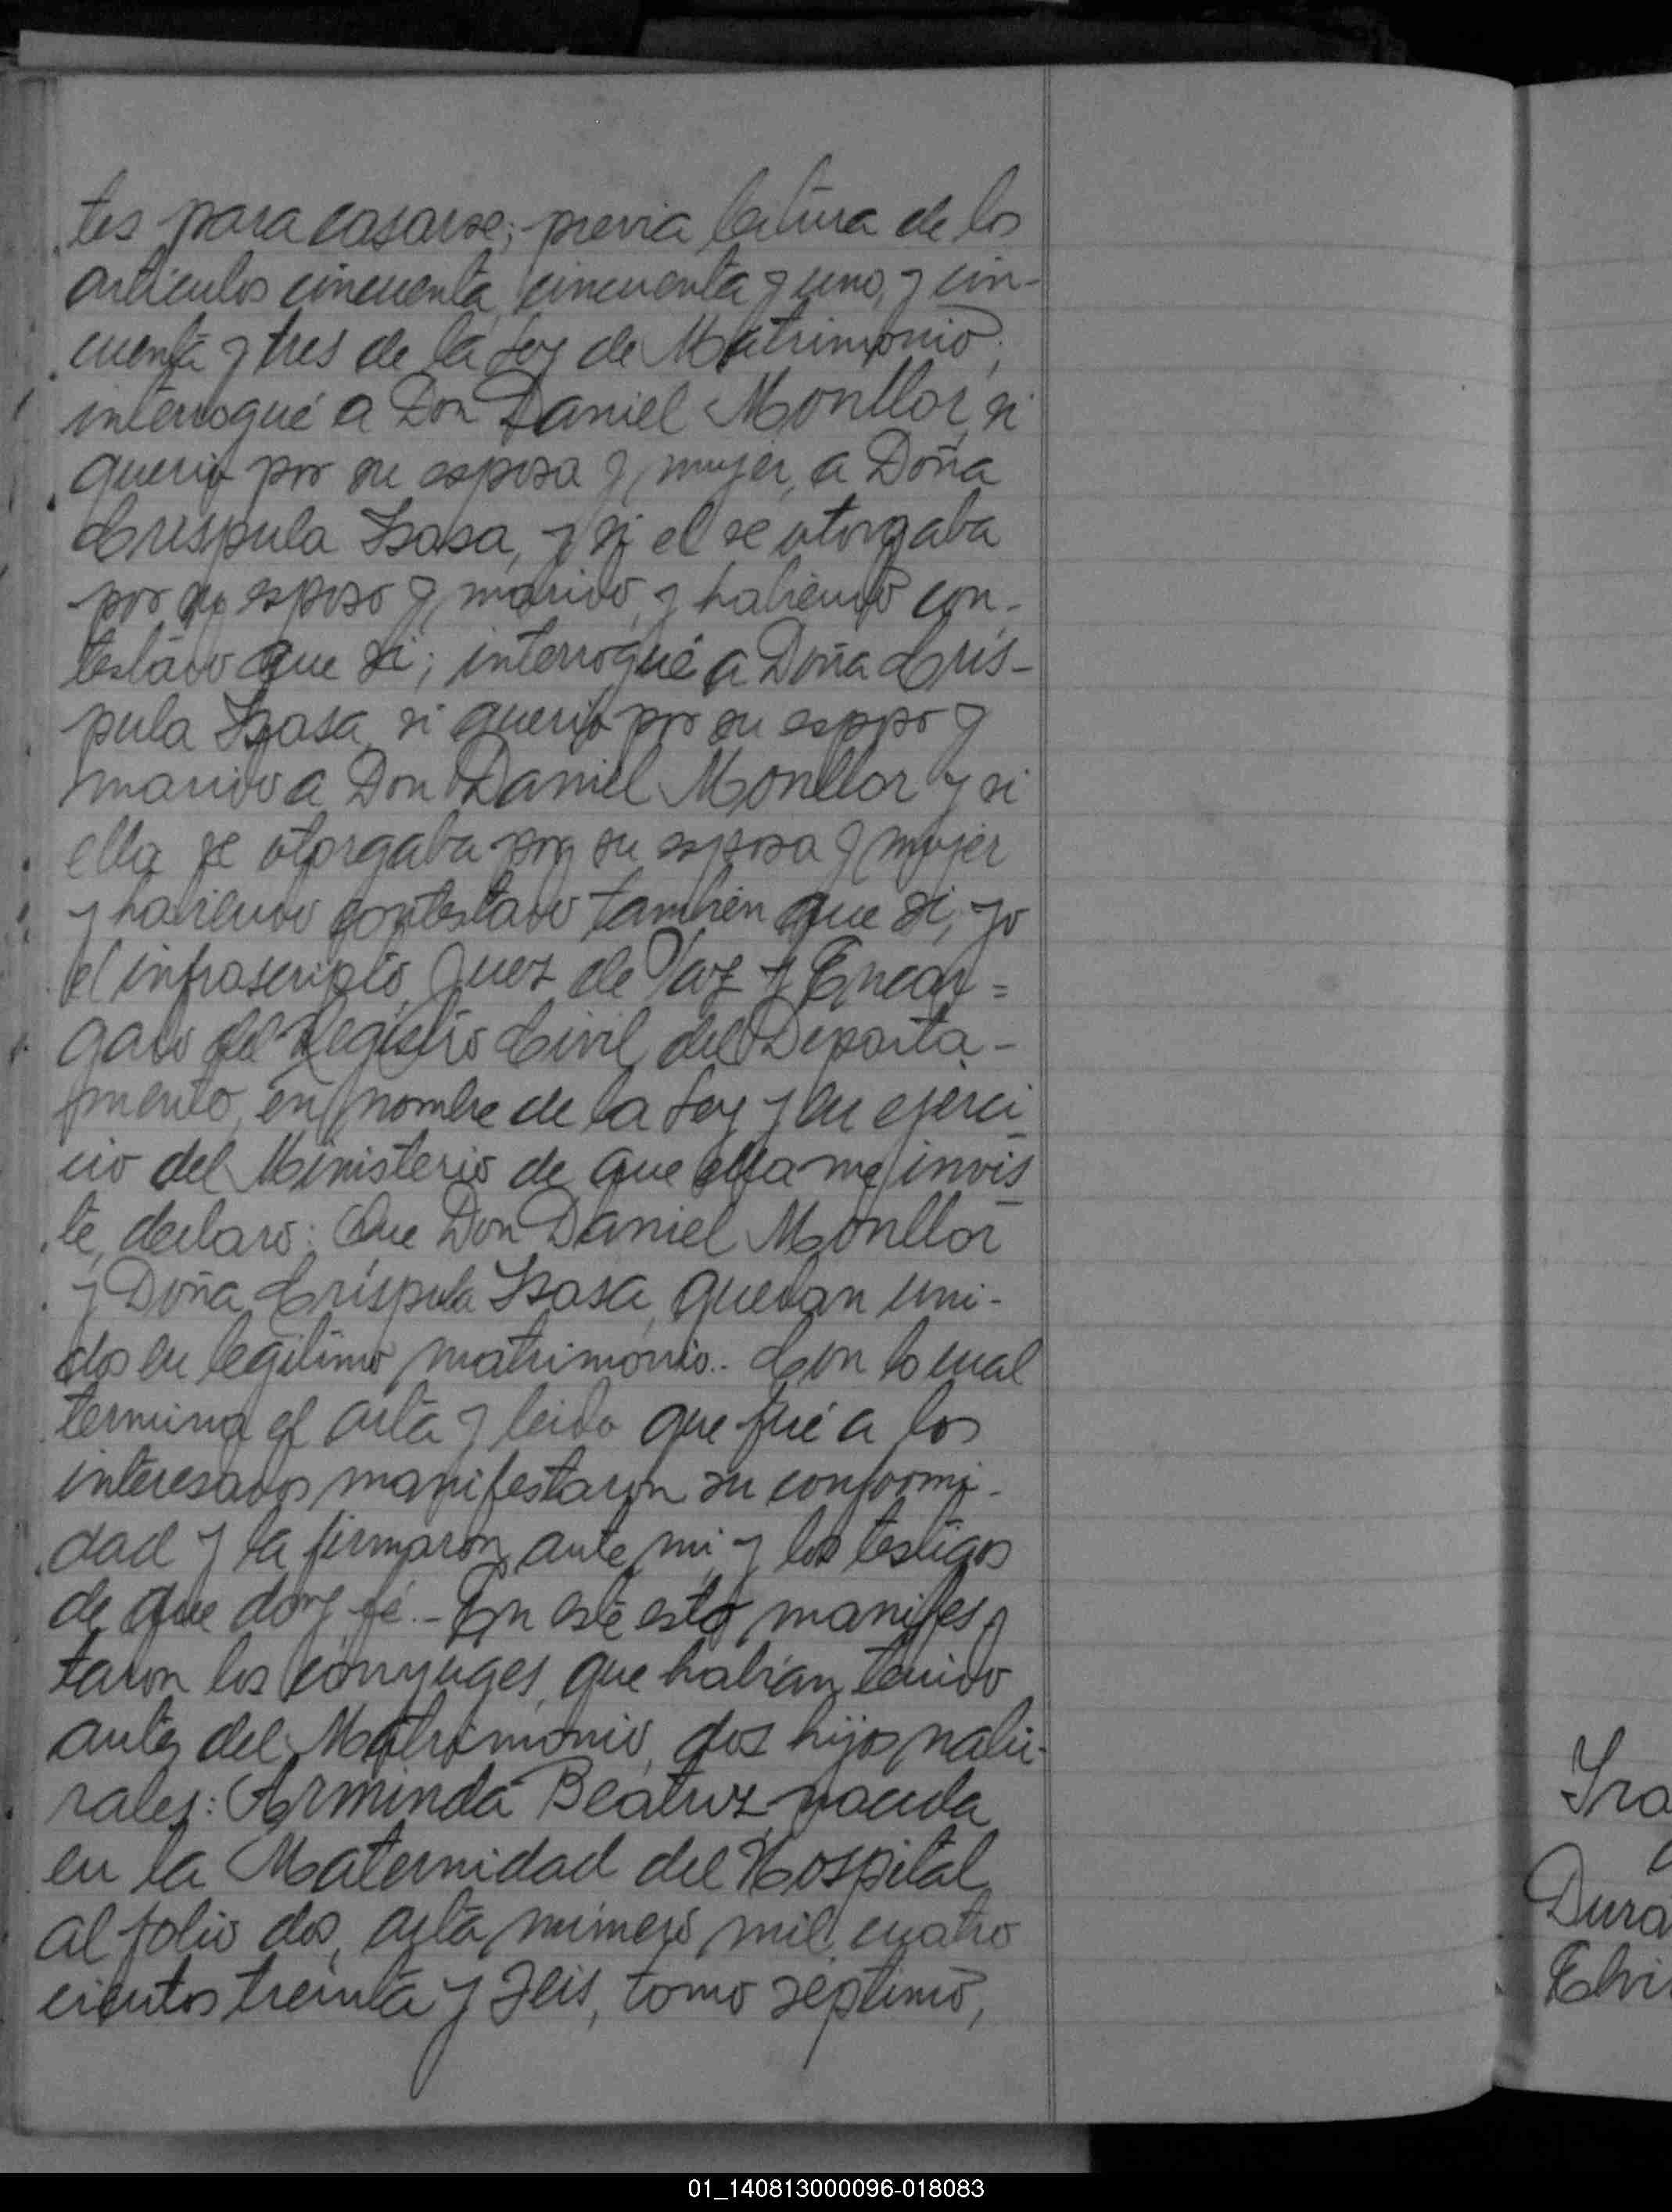 tes para casarse; previa lectura de los
artículos cincuenta, cincuenta y uno, y cin-
cuenta y tres de la Ley de Matrimonio;
interrogué a Don Daniel Monllor, si
quería por su esposa y mujer, a Doña
Crispula Isasa, y si el se otorgaba
por su esposo y marido, y habiendo con-
testado que si; interrogué a Doña Cris-
pula Isasa, si quería por su esposo y
marido a Don Daniel Monllor y si
ella se otorgaba por su esposa y mujer
y habiendo contestado también que si, yo
el infrascripto, Juez de Paz y Encar=
gado del Registro Civil del Departa-
mento, en nombre de la Ley y en ejerci
cio del Ministerio de que ella me invis
te, declaro: Que Don Daniel Monllor
y Doña Críspula Isasa, quedan uni-
dos en legítimo matrimonio.- Con lo cual
termina el acta y leida que fué a los
interesados manifestaron su conformi-
dad y la firmaron ante mi y los testigos
de que doy fé.- En este esto manifes
taron los cónyuges, que habían tenido
antes del Matrimonio, dos hijos natu-
rales: Arminda Beatriz, nacida
en la Maternidad del Hospital
al folio dos, acta número mil cuatro
cientos treinta y seis, tomo séptimo,
Dura
Elvi
01_140813000096-018083